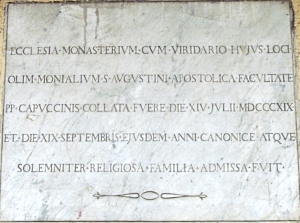 ECCLESIA·MONASTERIVM·CVM·VIRIDARIO·HVJVS·LOCI
OLIM·MONIALIVM·S·AVGVSTINI·APOSTOLICA·FACVLTATE
PP·CAPVCCINIS·COLLATA·FVERE·DIE·XIV·JVLII·MDCCCXIX
ET·DIE·XIX·SEPTEMBRIS·EJVSDEM·ANNI·CANONICE·ATQVE
SOLEMNITER·RELIGIOSA·FAMILIA·ADMISSA·FVIT·